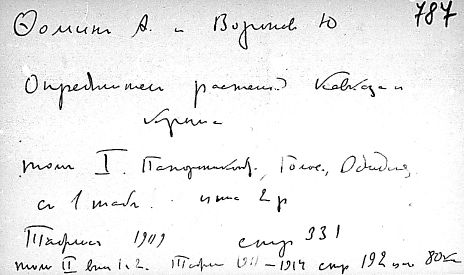 Фомин А. и Воронов Ю 787
Определитель растений Кавказа и
Крыма
том I. Папоротникообр., Голос., Однодол,
с 1 табл. цена 2 р
Тифлис 1909 стр 331
том II вып 1 и 2. Тифлис 1911–1914 стр 192 80к